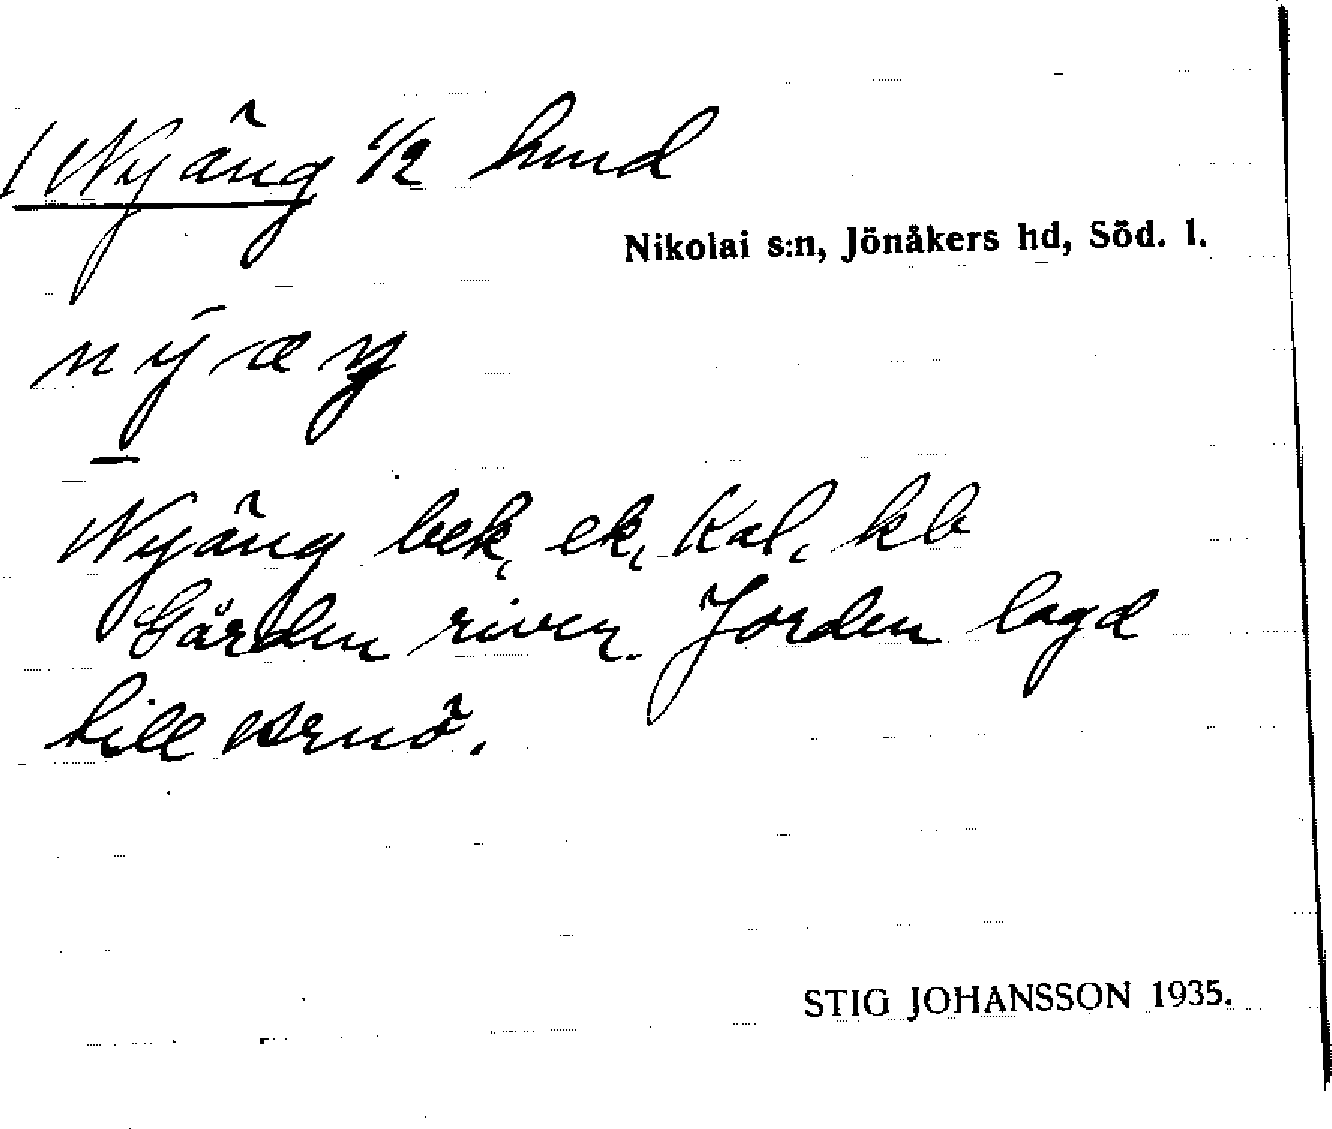 1 Nyäng 1/2 hmd
Nikolai s:n, Jönåkers hd, Söd. l.
nȳæŋ
Nyäng bek, ek, Kal, kb
Gården riven. Jorden lagd
till Arnö.
STIG JOHANSSON 1935.